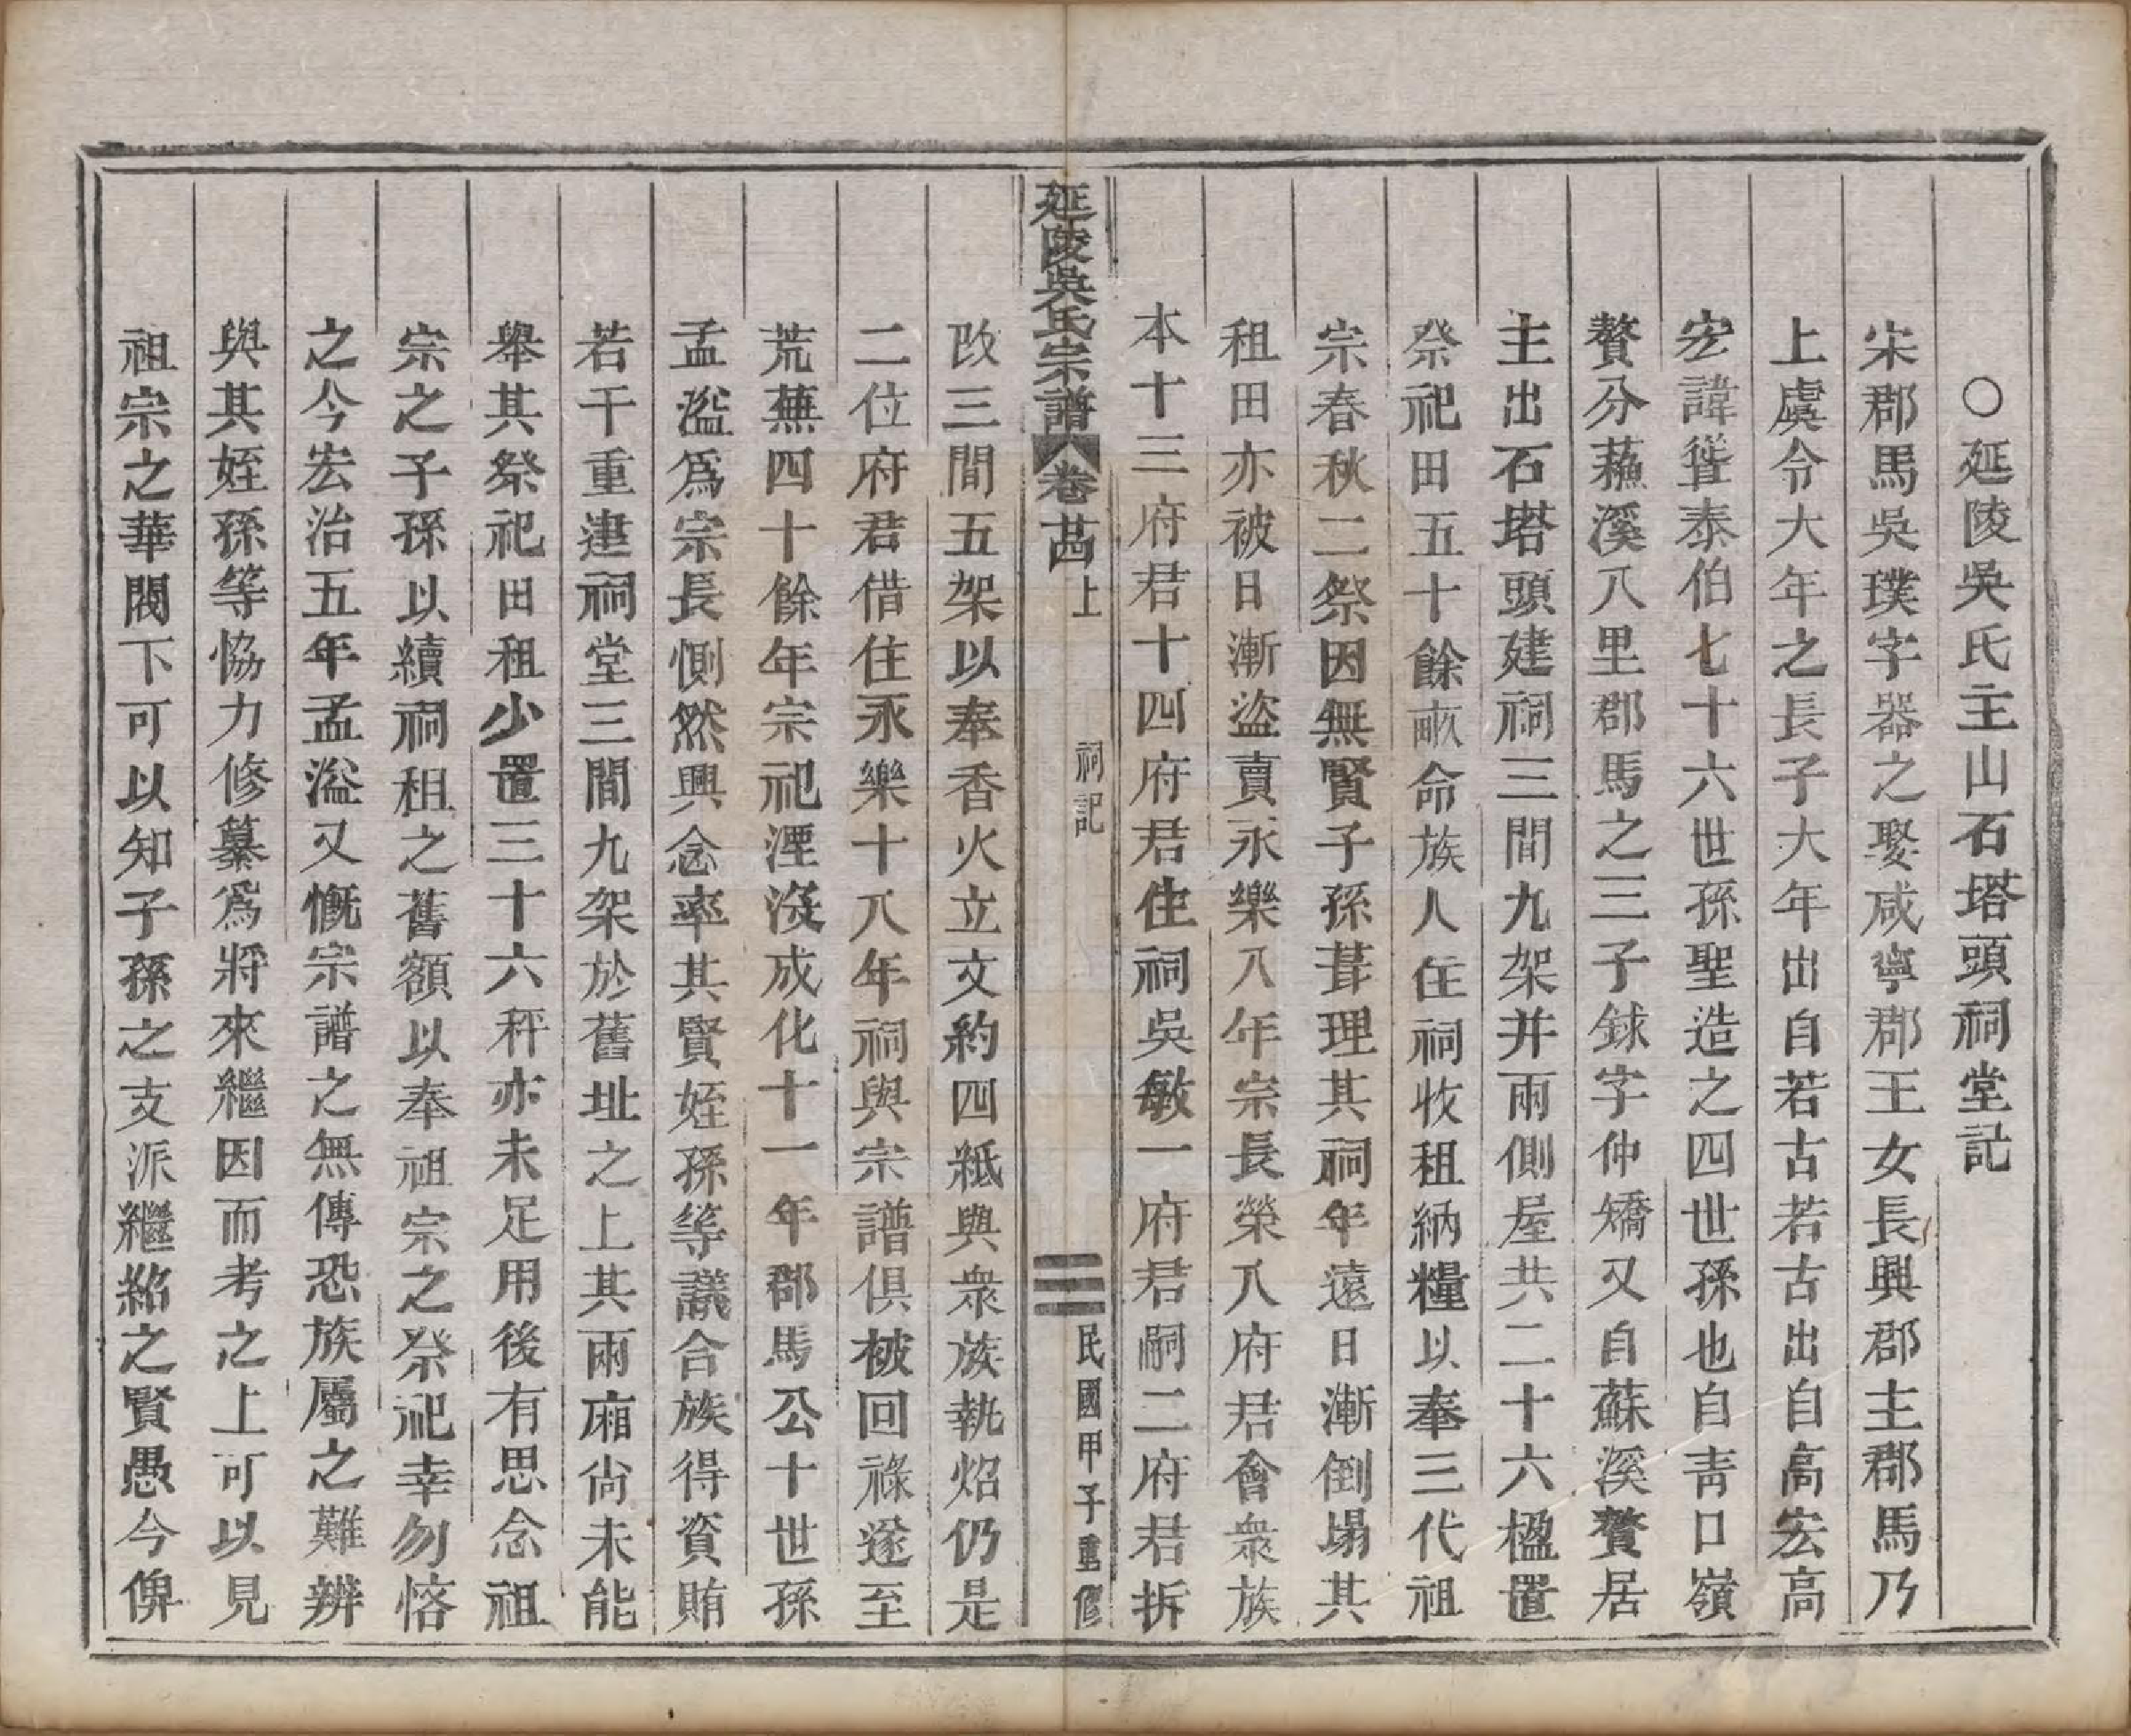 ○延陵吳氏主山石塔頭祠堂記
宋郡馬吳璞字器之娶咸寧郡王女長興郡主郡馬乃
上虞令大年之長子大年出自若古若古出自高宏高
宏諱蓯泰伯七十六世孫聖造之四世孫也自靑口嶺
贅分蘓溪八里郡馬之三子銶字仲矯又自蘇溪贅居
主出石塔頭建祠三間九架并兩側屋共二十六楹置
祭祀田五十餘畝命族人住祠收租納糧以奉三代祖
宗春秋二祭因無賢子孫葺理其祠年遠日漸倒塌其
租田亦被日漸盜賣永樂八年宗長榮八府君會衆族
本十三府君十四府君住祠吳敏一府君嗣二府君拆
延陵吳氏宗譜
卷苖上
祠記
三
民國甲子重修
改三間五架以奉香火立文約四紙與衆族執炤仍是
二位府君借住永樂十八年祠與宗譜俱被回祿遂至
荒蕪四十餘年宗祀湮沒成化十一年郡馬公十世孫
孟溢爲宗長惻然興念率其賢姪孫等議合族得資賄
若干重建祠堂三間九架於舊址之上其兩廂尙未能
舉其祭祀田租少置三十六秤亦未足用後有思念祖
宗之子孫以續祠租之舊額以奉祖宗之祭祀幸勿悋
之今宏治五年孟溢又慨宗譜之無傳恐族屬之難辨
與其姪孫等恊力修纂爲將來繼因而考之上可以見
祖宗之華閥下可以知子孫之支派繼紹之賢愚今俾